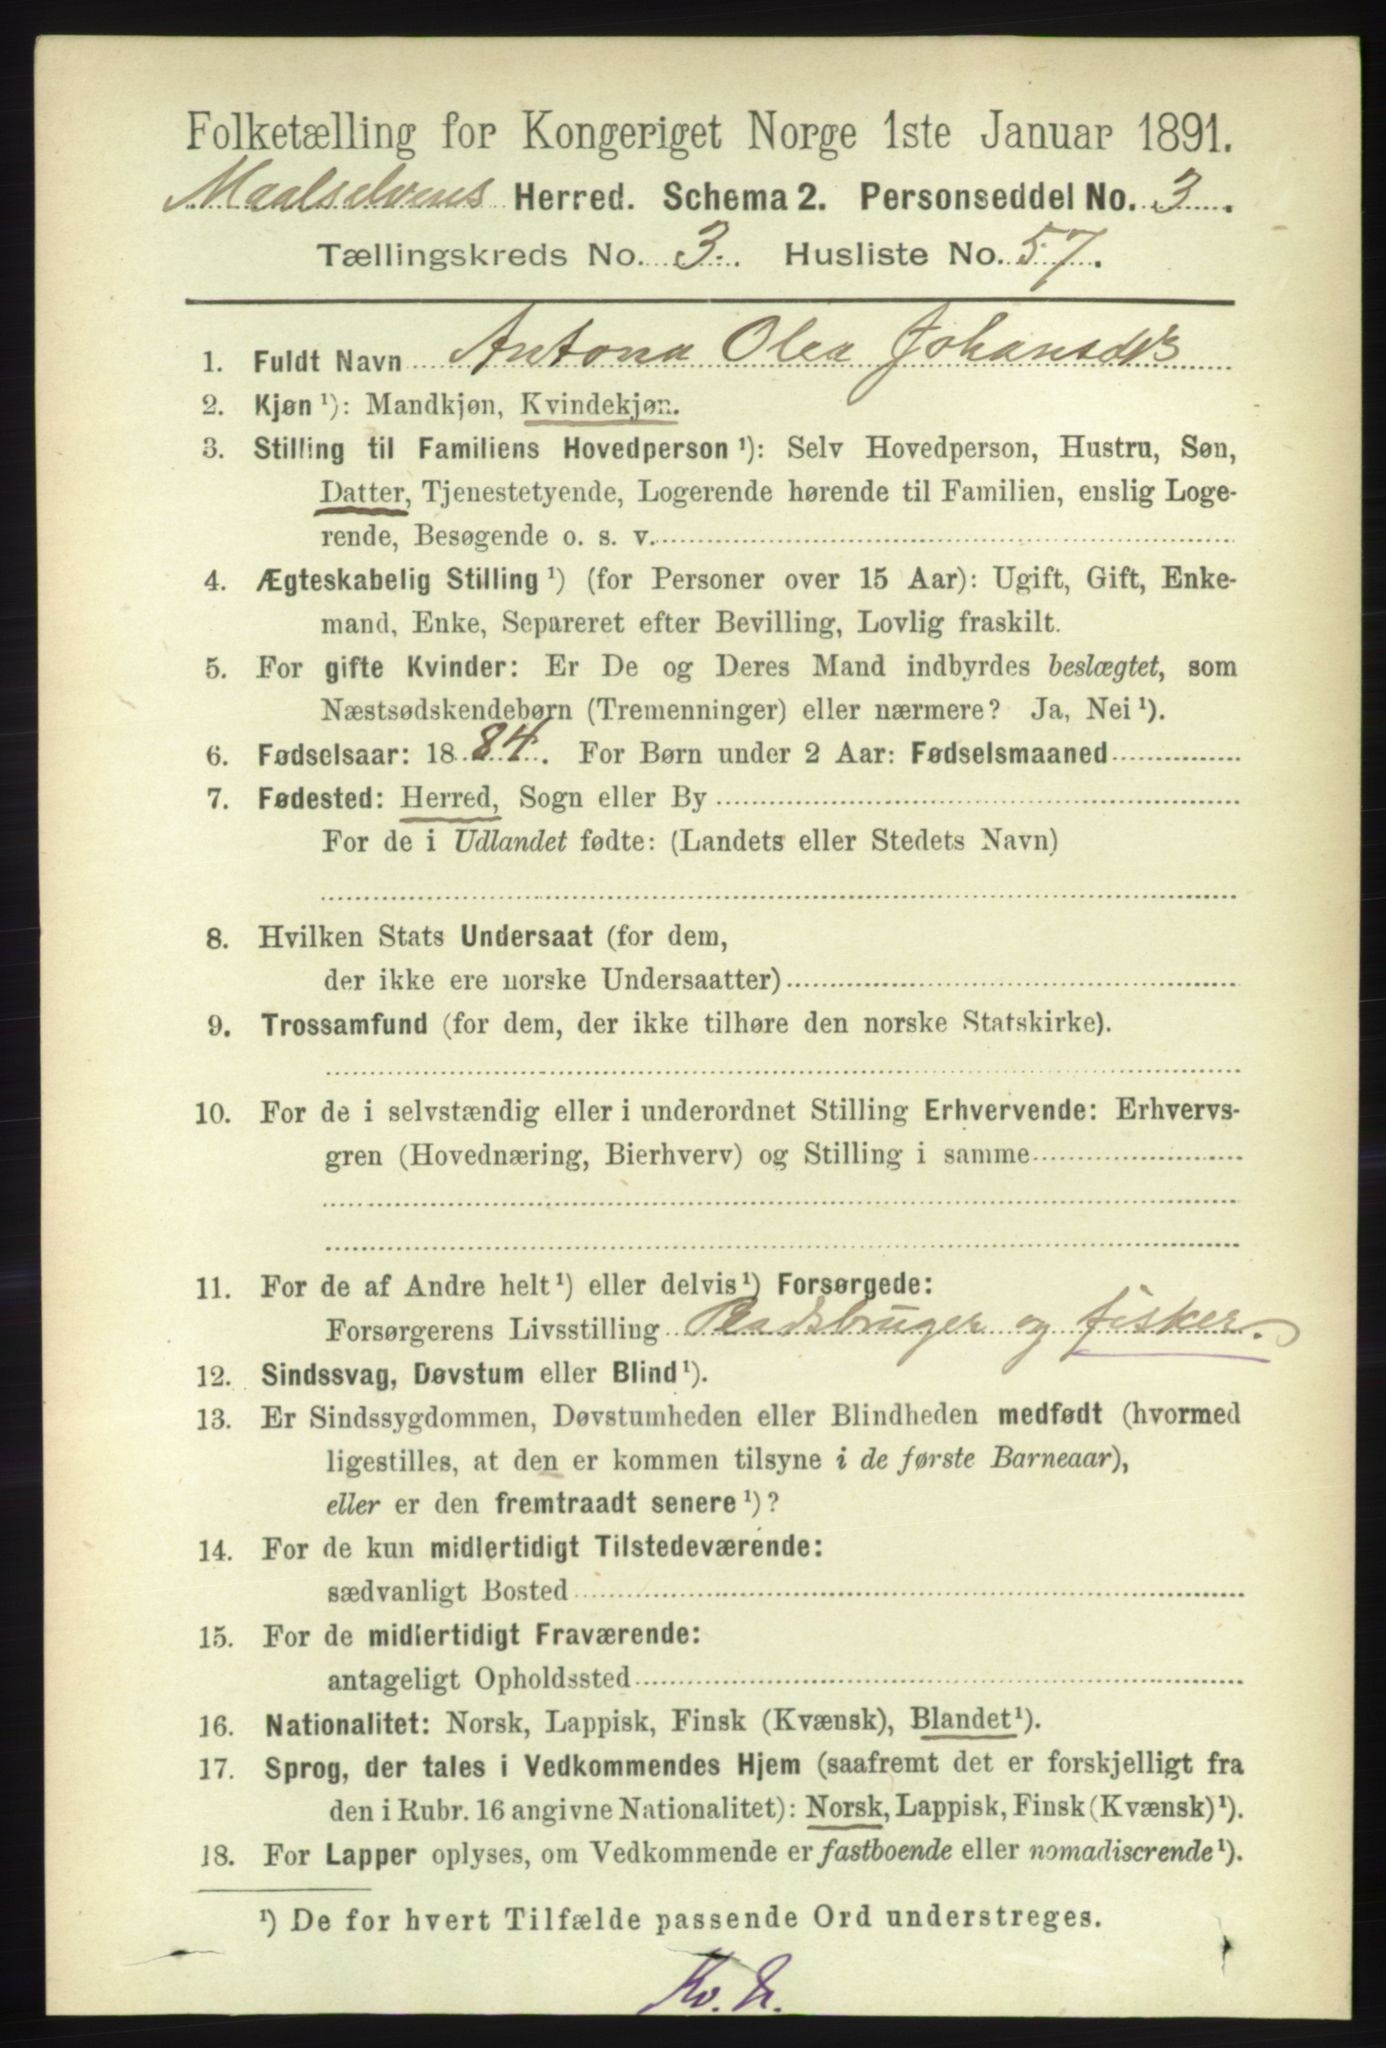 Folketælling for Kongeriget Norge 1ste Januar 1891.
Maalselvens Herred. Schema 2. Personseddel No. 3.
Tællingskreds No. 3. Husliste No. 57.
1. Fuldt Navn Antona Olea Johansdr
2. Kjøn ¹): Mandkjøn, Kvindekjøn.
3. Stilling til Familiens Hovedperson ¹): Selv Hovedperson, Hustru, Søn,
Datter, Tjenestetyende, Logerende hørende til Familien, enslig Loge-
rende, Besøgende o. s. v.
4. Ægteskabelig Stilling ¹) (for Personer over 15 Aar): Ugift, Gift, Enke-
mand, Enke, Separeret efter Bevilling, Lovlig fraskilt.
5. For gifte Kvinder: Er De og Deres Mand indbyrdes beslægtet, som
Næstsødskendebørn (Tremenninger) eller nærmere? Ja, Nei ¹).
6. Fødselsaar: 1884. For Børn under 2 Aar: Fødselsmaaned
7. Fødested: Herred, Sogn eller By
For de i Udlandet fødte: (Landets eller Stedets Navn)
8. Hvilken Stats Undersaat (for dem,
der ikke ere norske Undersaatter)
9. Trossamfund (for dem, der ikke tilhøre den norske Statskirke).
10. For de i selvstændig eller i underordnet Stilling Erhvervende: Erhvervs-
gren (Hovednæring, Bierhverv) og Stilling i samme
11. For de af Andre helt ¹) eller delvis ¹) Forsørgede:
Forsørgerens Livsstilling Pladsbruger og fisker.
12. Sindssvag, Døvstum eller Blind ¹).
13. Er Sindssygdommen, Døvstumheden eller Blindheden medfødt (hvormed
ligestilles, at den er kommen tilsyne i de første Barneaar),
eller er den fremtraadt senere ¹)?
14. For de kun midlertidigt Tilstedeværende:
sædvanligt Bosted
15. For de midlertidigt Fraværende:
antageligt Opholdssted
16. Nationalitet: Norsk, Lappisk, Finsk (Kvænsk), Blandet ¹).
17. Sprog, der tales i Vedkommendes Hjem (saafremt det er forskjelligt fra
den i Rubr. 16 angivne Nationalitet): Norsk, Lappisk, Finsk (Kvænsk) ¹).
18. For Lapper oplyses, om Vedkommende er fastboende eller nomadiserende ¹).
¹) De for hvert Tilfælde passende Ord understreges.